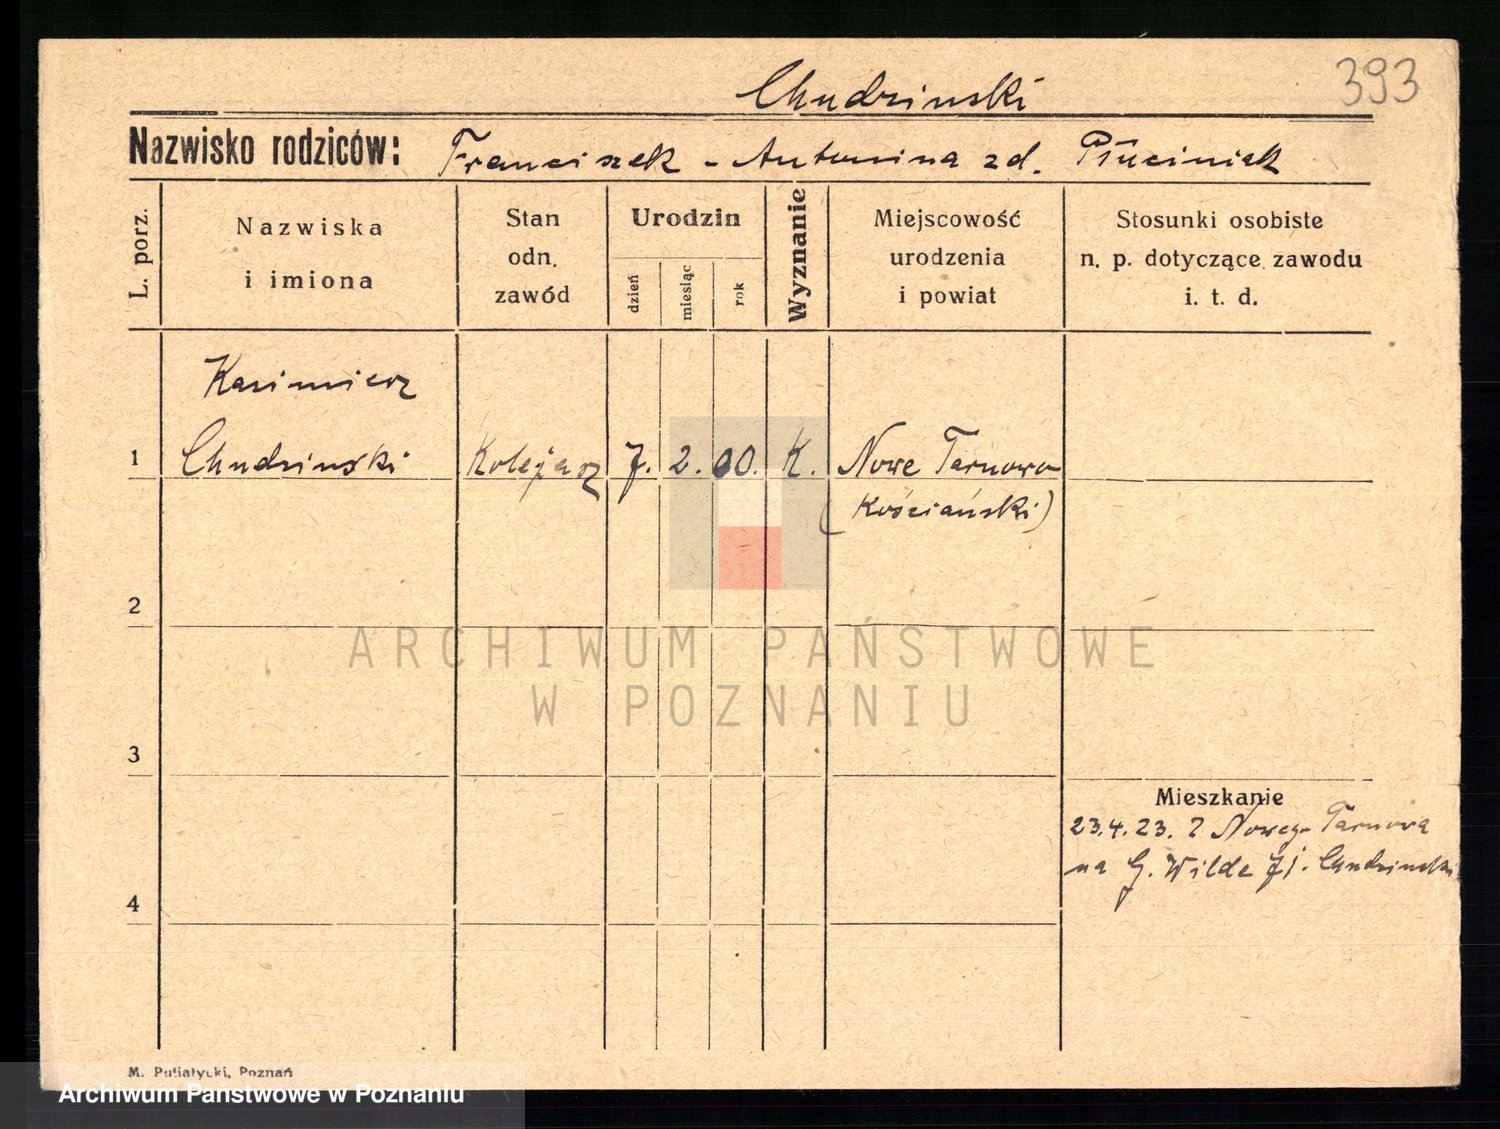 393
Chudzinski
Nazwisko rodziców: Franciszek - Antonina zd. Płuciniak
L. porz.
Nazwiska
i imiona
Stan
odn.
zawód
Urodzin
dzień
miesiąc
rok
Wyznanie
Miejscowość
urodzenia
i powiat
Stosunki osobiste
n. p. dotyczące zawodu
i. t. d.
Kazimierz
1 Chudzinski Kolejarz 7. 2. 00. K. Nowe Tarnowo
(Kościański)
2
ARCHIWUM PAŃSTWOWE
W POZNANIU
3
Mieszkanie
23.4.23. z Nowego Tarnowa
na G. Wilde 71. Chudzinski
4
M. Putiatycki, Poznań
Archiwum Państwowe w Poznaniu